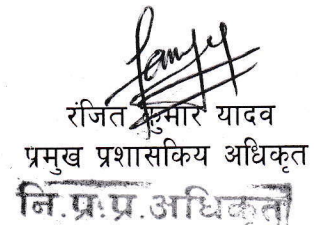 रंजित कुमार यादव
प्रमुख प्रशासकिय अधिकृत
नि.प्र.प्र.अधिकृत